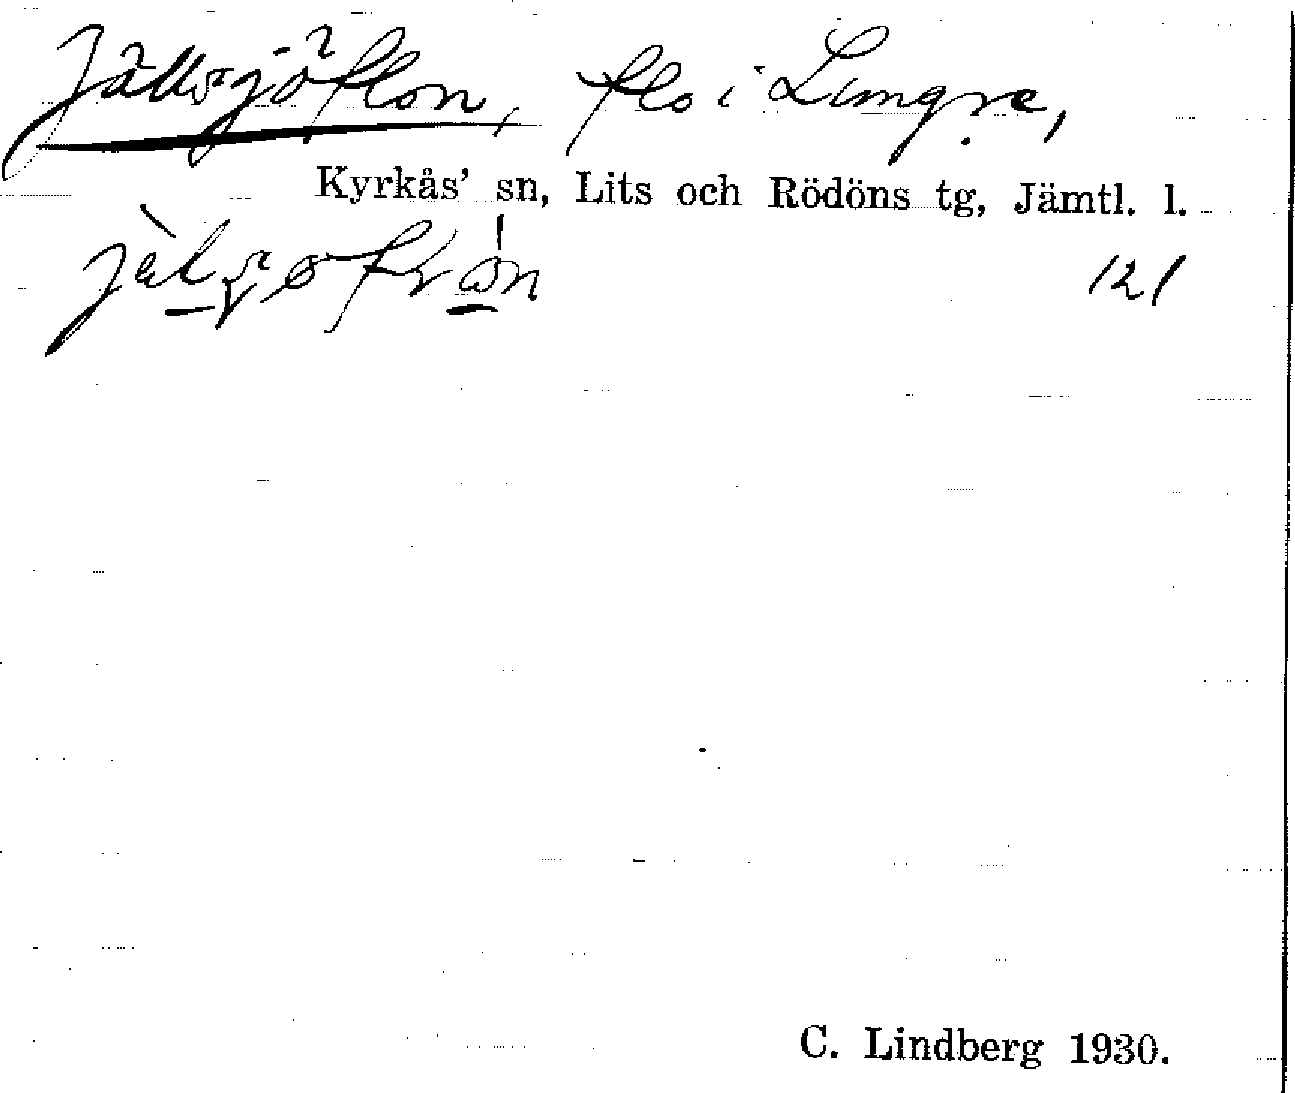 Jällsjöflon, flo i Lungre,
Kyrkås' sn, Lits och Rödöns tg, Jämtl. l.
121
C. Lindberg 1930.